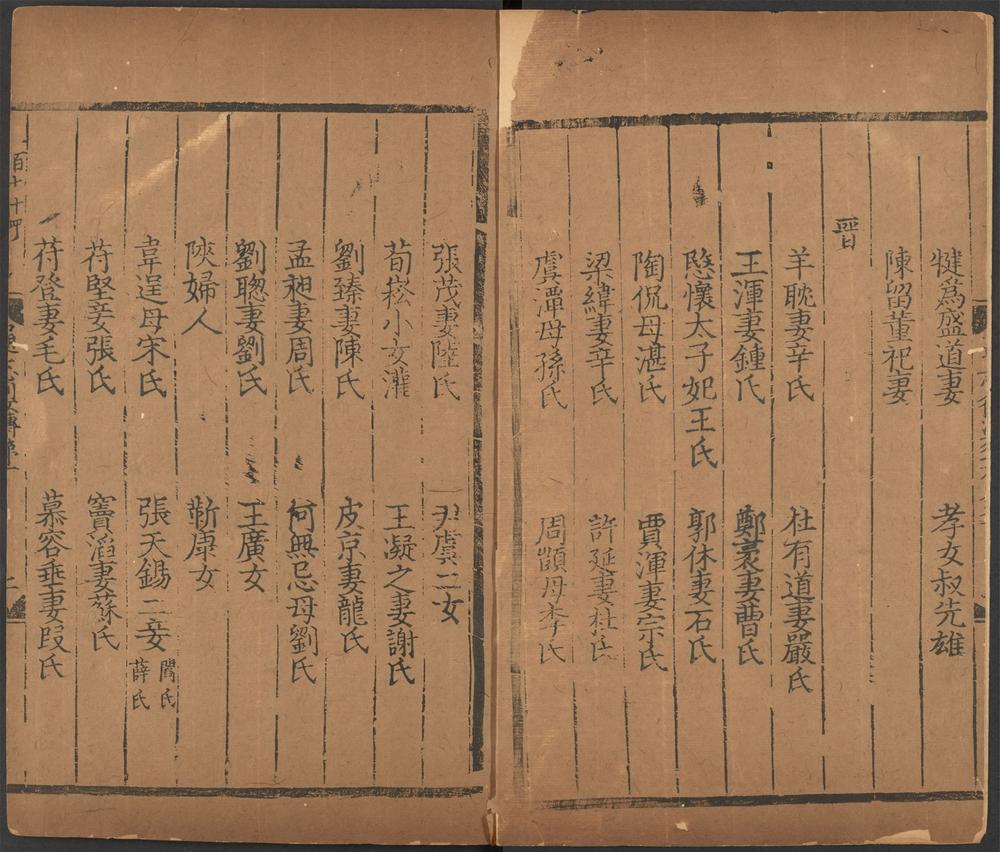 犍爲盛道妻　孝女叔先雄
陳留董祀妻
晉
羊耽妻辛氏　杜有道妻嚴氏
王渾妻鍾氏　鄭袤妻曹氏
愍懷太子妃王氏　郭休妻石氏
陶侃母湛氏　賈渾妻宗氏
梁緯妻辛氏　許延妻杜氏
虞潭母孫氏　周顗母李氏
張茂妻陸氏　尹虞二女
荀崧小女灌　王凝之妻謝氏
劉臻妻陳氏　皮京妻龍氏
孟昶妻周氏　何無忌母劉氏
劉聦妻劉氏　王廣女
陝婦人　靳康女
韋逞母宋氏　張天錫二妾　閻氏　薛氏
苻堅妾張氏　竇滔妻蘇氏
苻登妻毛氏　慕容垂妻段氏